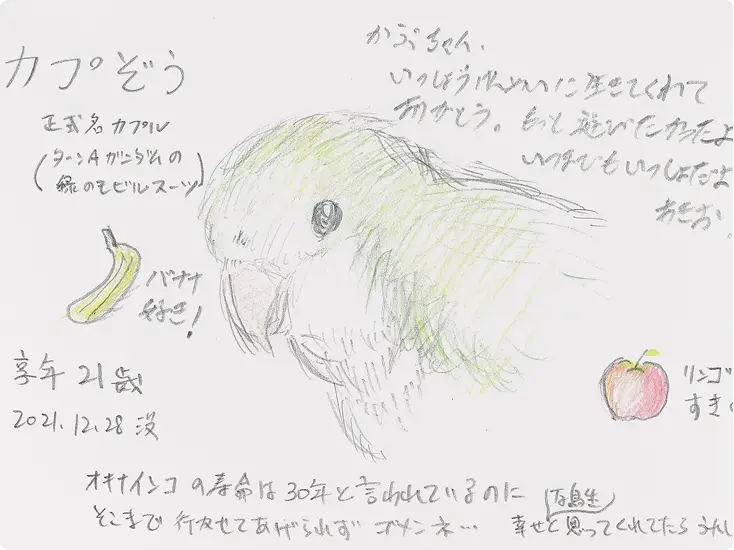 カプぞう
正式名 カプル
(ターンAガンダムの
緑のモビルスーツ)
かぷちゃん、
いっしょうけんめいに生きてくれて
ありがとう。もっと遊びたかったよ
いつまでもいっしょだよ
あきお
バナナ
好き!
享年 21歳
2021.12.28 没
リンゴ
すき
オキナインコの寿命は30年と言われているのに
そこまで行かせてあげられず ゴメンネ…
鳥生
幸せと思ってくれてたら